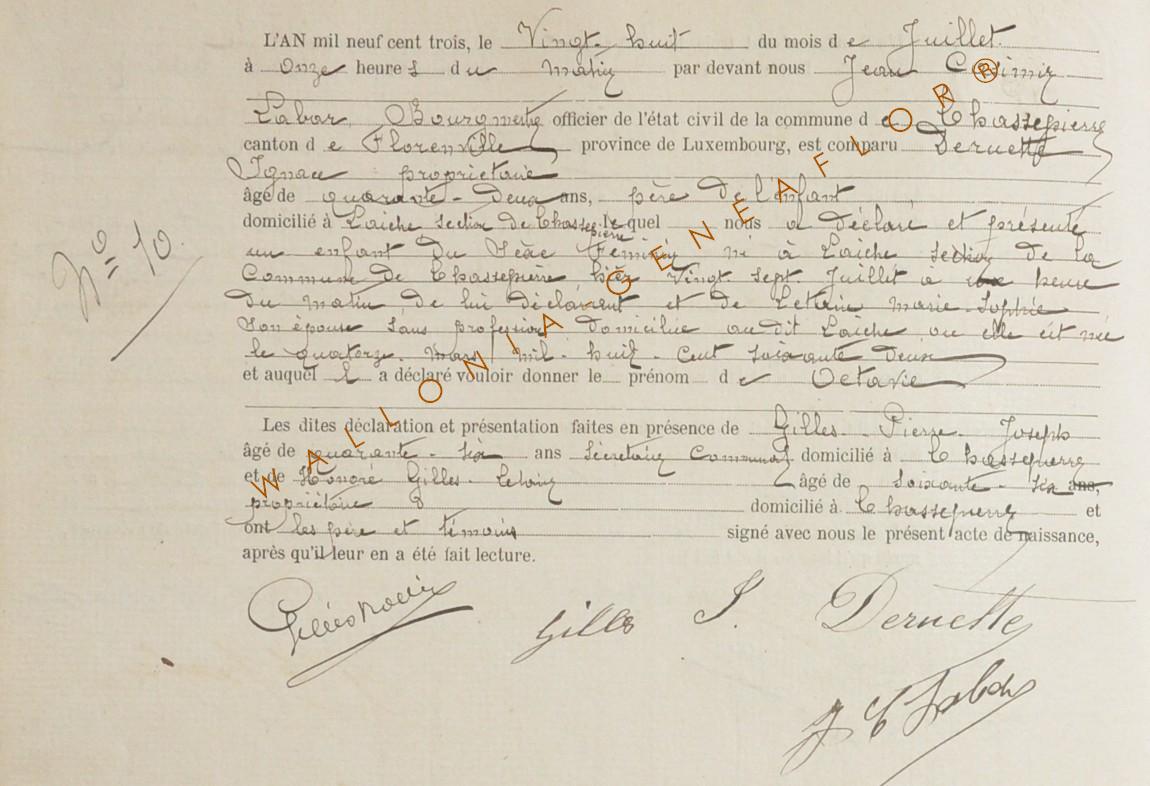 L'AN mil neuf cent trois, le Vingt-huit du mois de Juillet
à Onze heures du matin par devant nous Jean
Labar, Bourgmestre officier de l'état civil de la commune de Chassepierre
canton de Florenville province de Luxembourg, est comparu Dernette
Ignace propriétaire
âgé de quarante-Deux ans, père de l'enfant
domicilié à Laiche section de Chassepierre lequel nous a déclaré et présenté
un enfant du Sèxe Féminin né à Laiche section de la
Commune de Chassepierre hier Vingt sept Juillet à heure
du matin de lui déclarent et de Marie-Sophie
son épouse sans profession domiciliée au dit Laiche où elle est née
le quatorze Mars mil-huit-cent soixante deux
et auquel il a déclaré vouloir donner le prénom de Octavie
Les dites déclaration et présentation faites en présence de Gilles-Pierre-Joseph
âgé de quarante-six ans Sécretaire Communal domicilié à Chassepierre
et de Honoré Gilles- âgé de soixante-six ans,
propriétaire domicilié à Chassepierre et
ont les père et témoins signé avec nous le présent acte de naissance,
après qu'il leur en a été fait lecture.
N° 10.
Gilles J. Dernette
J C Labar
WALLONIA GENEAFLOR®